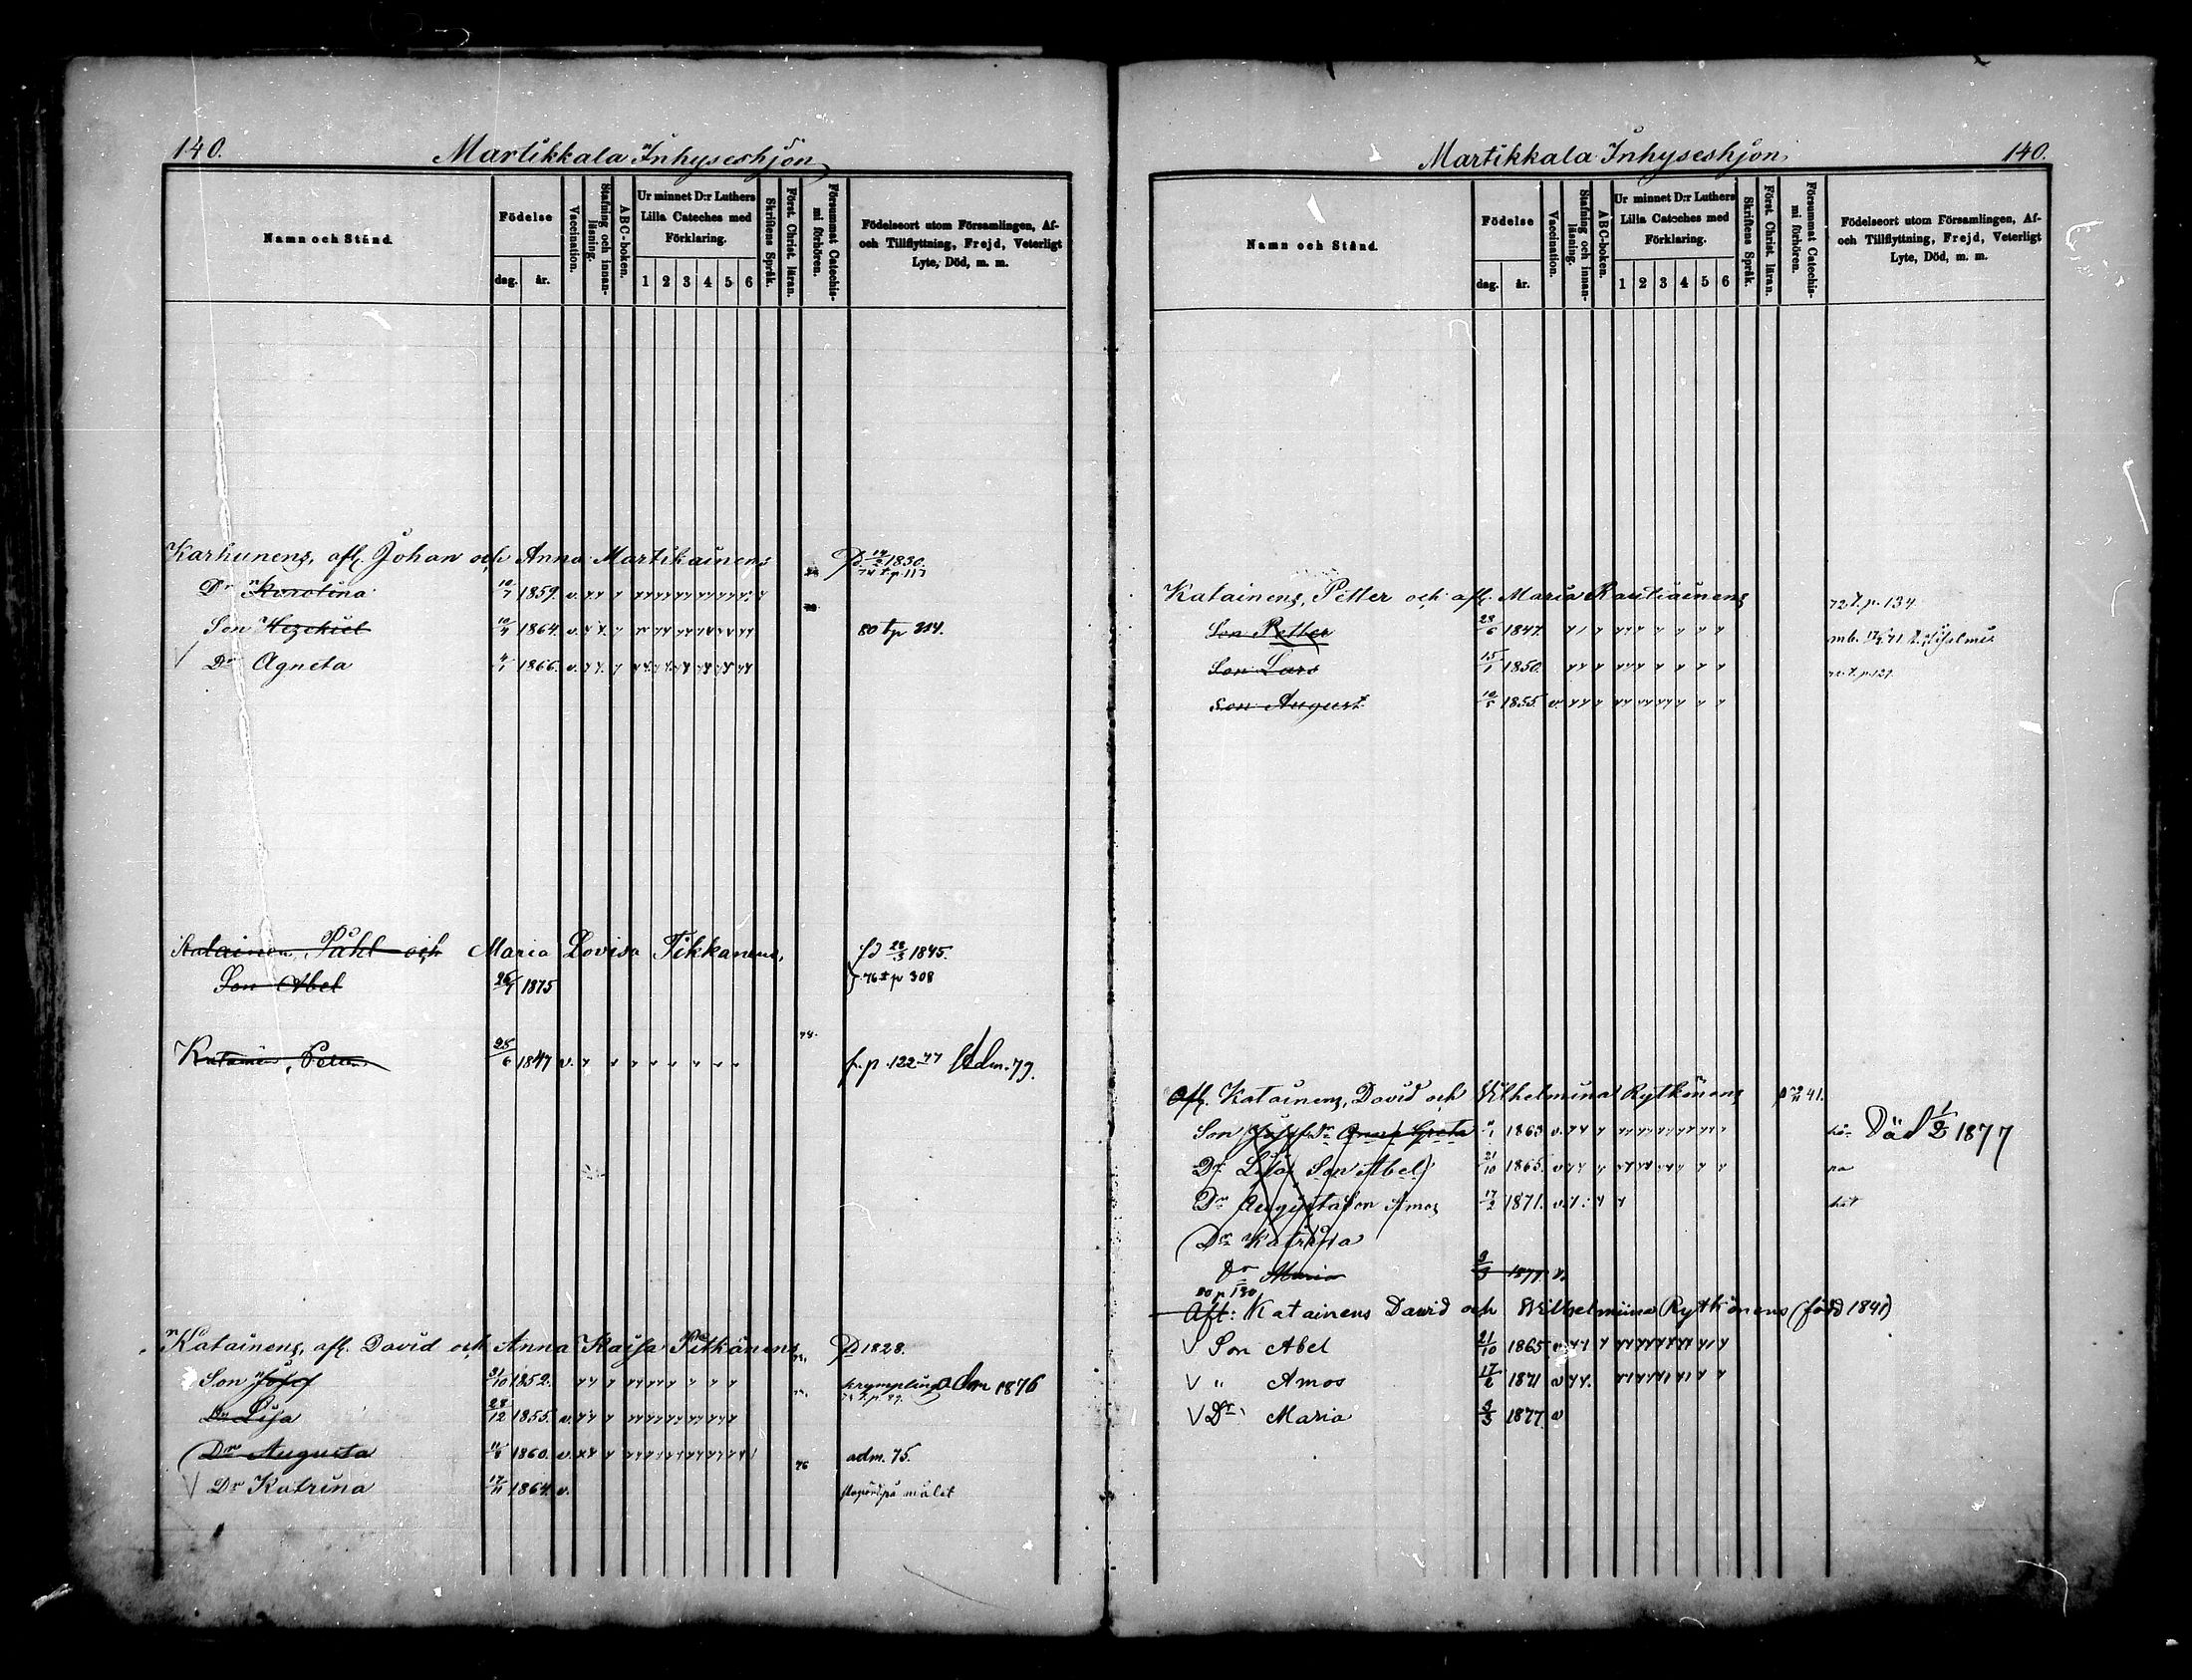 140.
Martikkala Inhyseshjon
Namn och Stånd.
Födelse
dag. år.
Vaccination.
Stafning och innanläsning.
ABC-boken.
Ur minnet D:r Luthers Lilla Cateches med Förklaring.
1 2 3 4 5 6
Skriftens Språk.
Först. Christ. läran.
Försumat Catechismi förhören.
Födelseort utom Församlingen, Af- och Tillflyttning, Frejd, Veterligt Lyte, Död, m. m.
Karhunens, afl. Johan och Anna Martikainens 1830.
Dr Karolina 10/7 1859. v.
Son Hezekiel 10/4 1864. v. 80 t p 314.
V Dr Agneta 4/1 1866. v.
Katainen, Påhl och Maria Lovisa Tikkanens, fd 28/3 1845.
Son Abel 1875 76 t p 308
74.
Katainen, Petter 25/6 1847 v. f. p. 122 77 Adm. 79.
Katainens, afl. David och Anna Kaisa Pitkänens 1828.
Son Josef 31/10 1852. krympling adm 1876
Dr Lisa 28/12 1855. v.
Dr Augusta 1860. v. adm. 75.
76
V Dr Katrina 17/11 1864. v. målet
Martikkala Inhyseshjon
140.
Namn och Stånd.
Födelse
dag. år.
Vaccination.
Stafning och innanläsning.
ABC-boken.
Ur minnet D:r Luthers Lilla Cateches med Förklaring.
1 2 3 4 5 6
Skriftens Språk.
Först. Christ. läran.
Försumat Catechismi förhören.
Födelseort utom Församlingen, Af- och Tillflyttning, Frejd, Veterligt Lyte, Död, m. m.
Katainens, Petter och afl. Maria Rautiainens 72 t. p. 134.
Son Petter 1847.
Son Lars 15/1 1850.
Son August 10/5 1855. v.
Afl. Katainens, David och Wilhelmina Rytkönens 41.
Son Josef Dr Anna Greta 1863 v. Död 1/2 1877
Dr Lisa Son Abel 21/10 1865. v
Dr Augusta Son Amos 17/2 1871. v.
Dr Katrina
Dr Maria 3/3 1877 v.
80 p 130
Aft: Katainens David och Wilhelmina Rytkönens (född 1841)
V Son Abel 21/10 1865 v
V " Amos 1871 v
V Dr Maria 3/3 1877 v